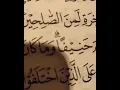 خِرَةِ لَمِنَ ٱلصَّٰلِحِينَ
حَنِيفًا وَمَا كَانَ
عَلَى ٱلَّذِينَ ٱخْتَلَفُوا